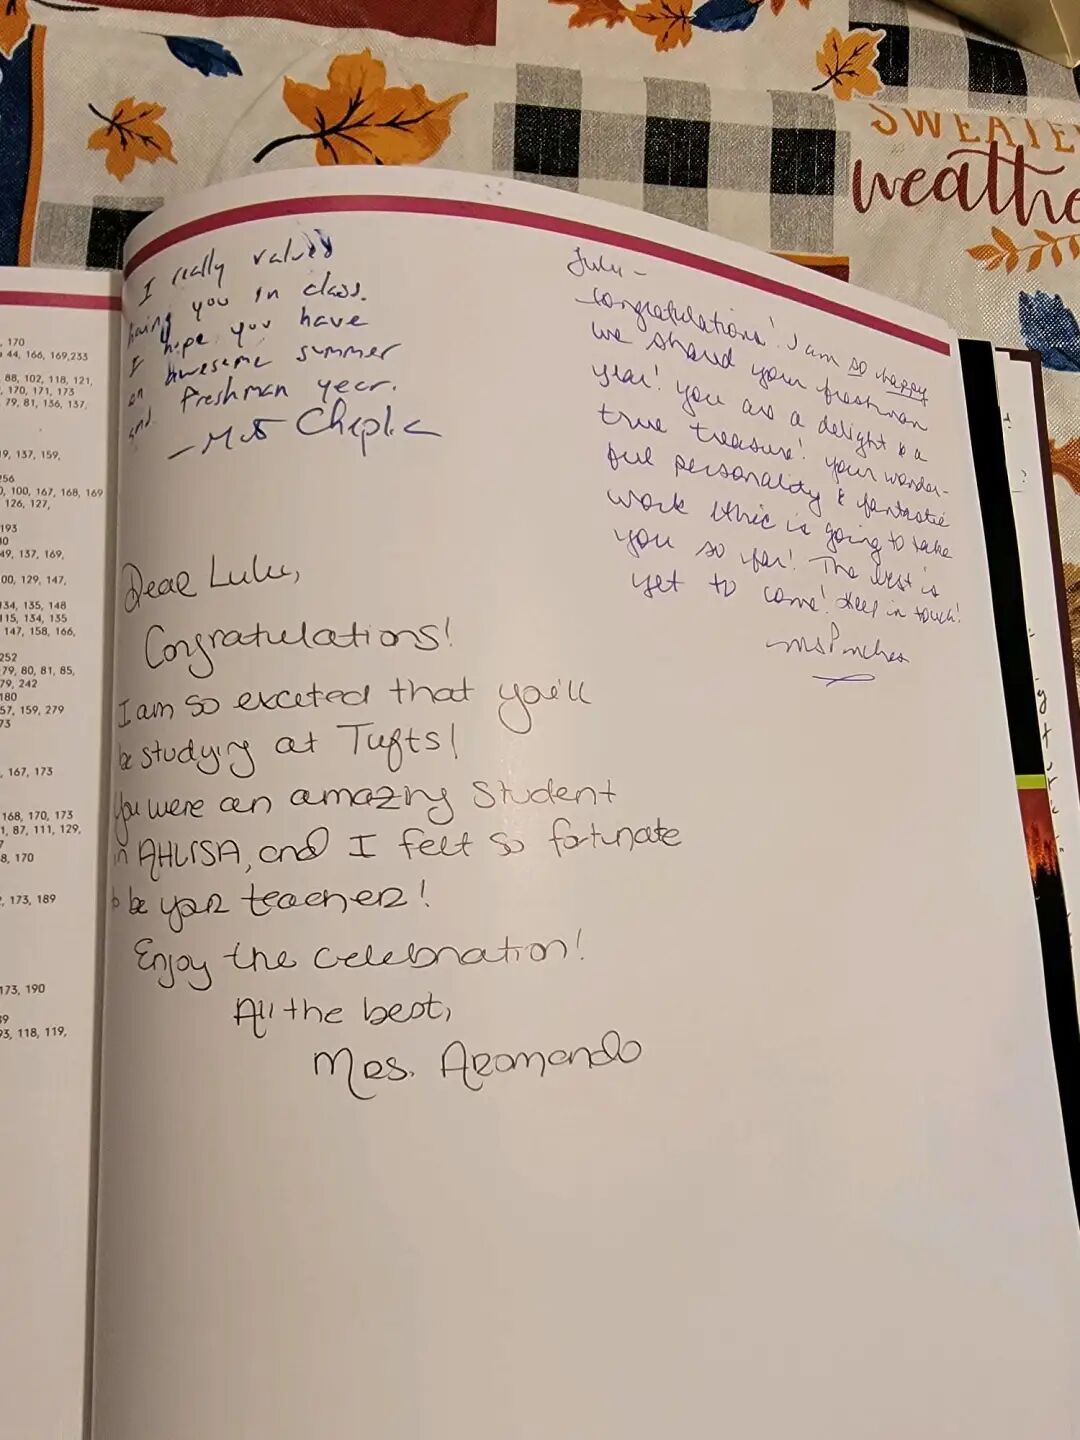 SWEATE
weathe
, 170
44, 166, 169,233
88, 102, 118, 121,
, 170, 171, 173
79, 81, 136, 137,
9, 137, 159,
256
0, 100, 167, 168, 169
126, 127,
193
49, 137, 169,
00, 129, 147,
134, 135, 148
115, 134, 135
147, 158, 166,
252
79, 80, 81, 85,
79, 242
180
57, 159, 279
73
, 167, 173
168, 170, 173
1, 87, 111, 129,
8, 170
, 173, 189
173, 190
93, 118, 119,
I really valued
having you in class.
I hope you have
an awesome summer
and freshman year.
Lulu -
Congratulations! I am so happy
we shared your freshman
year! You are a delight & a
true treasure! Your wonder-
ful personality & fantastic
work ethic is going to take
you so far! The best is
yet to come! Keep in touch!
Dear Lulu,
Congratulations!
I am so excited that you'll
be studying at Tufts!
You were an amazing student
in and I felt so fortunate
to be your teacher!
Enjoy the celebration!
All the best,
Mrs. Aromando